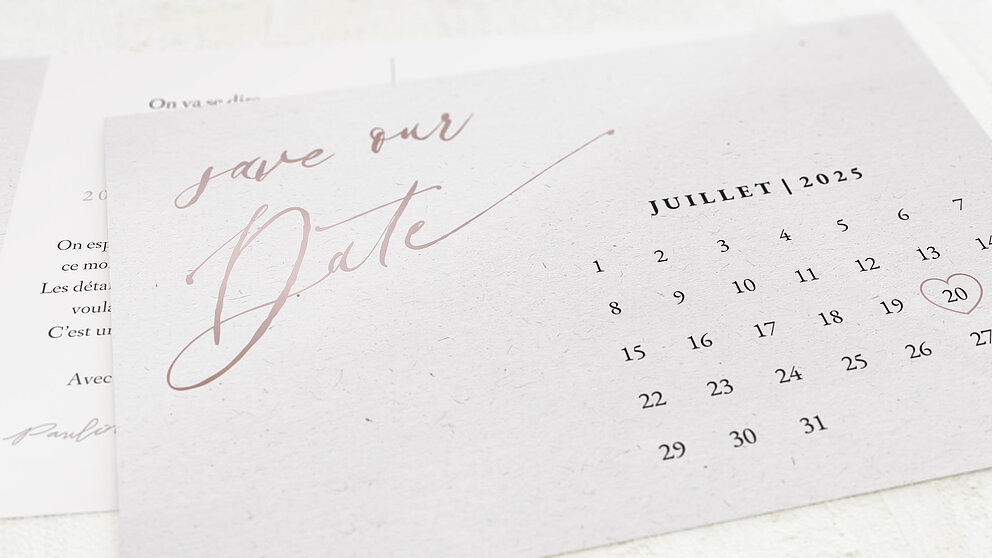 On va se dire
20
On esp
ce mo
Les déta
voula
C'est un
Avec
save our
Date
JUILLET | 2025
1 2 3 4 5 6 7
8 9 10 11 12 13 14
15 16 17 18 19 20
22 23 24 25 26 27
29 30 31